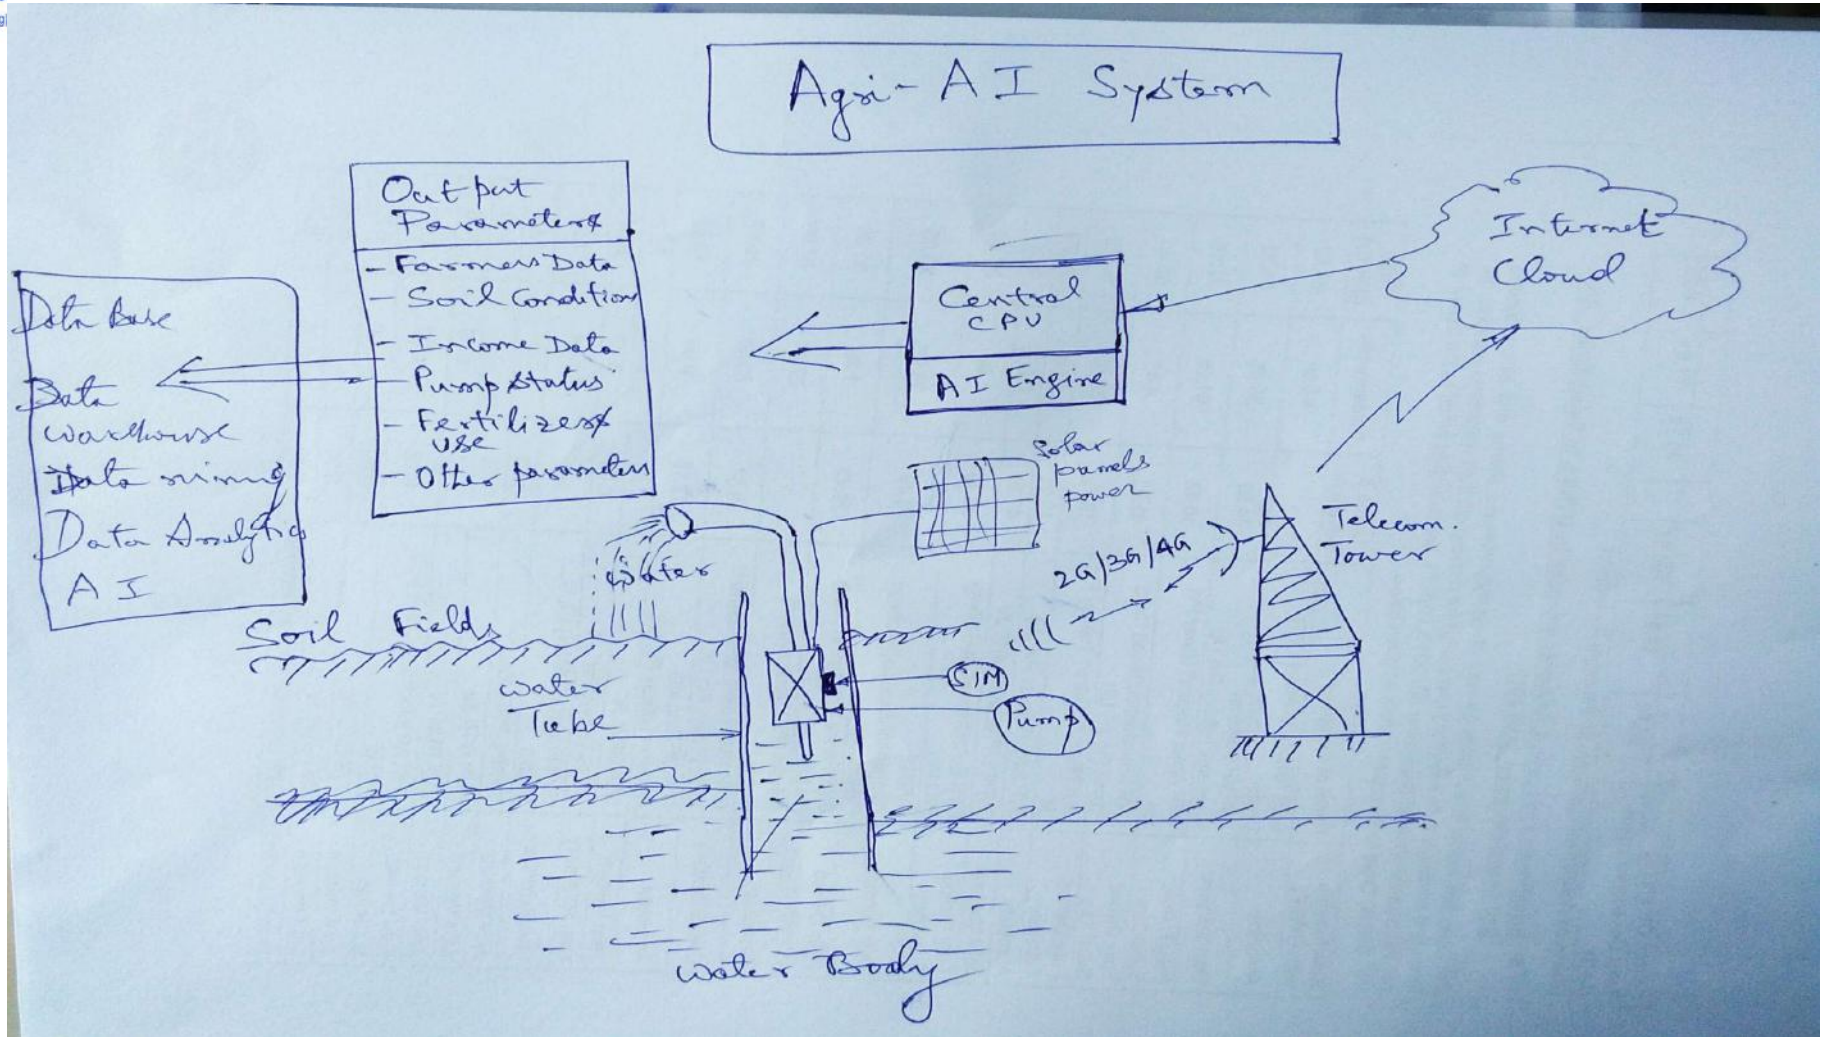 Agri-AI System
Output
Parameters
- Farmers Data
- Soil Condition
- Income Data
- Pump Status
- Fertilizers
use
- Other parameters
Data Base
Data
warehouse
Data mining
Data Analytics
AI
Central
CPU
AI Engine
Internet
Cloud
Solar
panels
power
Telecom.
Tower
2G/3G/4G
Water
Soil Fields
Water
Tube
SIM
Pump
Water Body